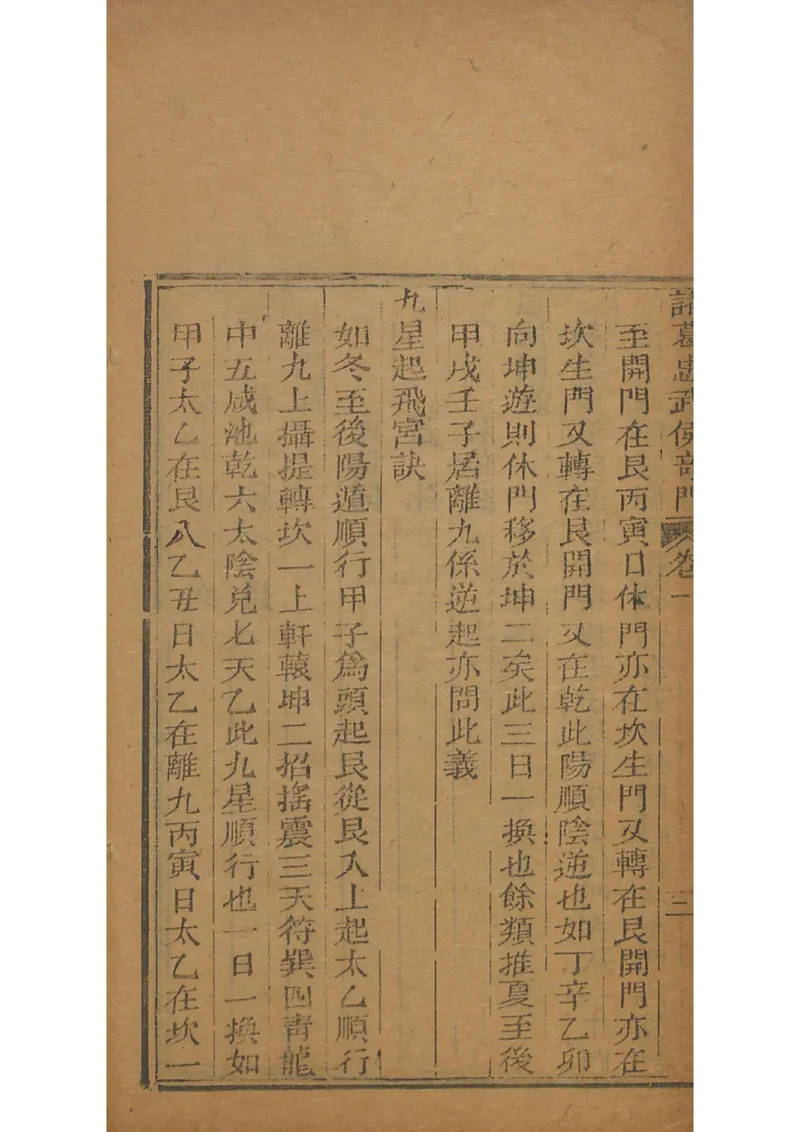 諸葛忠武侯奇門 卷一 三
至開門在艮丙寅日休門亦在坎生門又轉在艮開門亦在
坎生門又轉在艮開門又在乾此陽順陰逆也如丁辛乙卯
向坤遊則休門移於坤二矣此三日一換也餘類推夏至後
甲戌壬子居離九係逆起亦問此義
九星起飛宮訣
如冬至後陽遁順行甲子爲頭起艮從艮入上起太乙順行
離九上攝提轉坎一上軒轅坤二招搖震三天符巽四青龍
中五咸池乾六太陰兌七天乙此九星順行也一日一換如
甲子太乙在艮八乙丑日太乙在離九丙寅日太乙在坎一